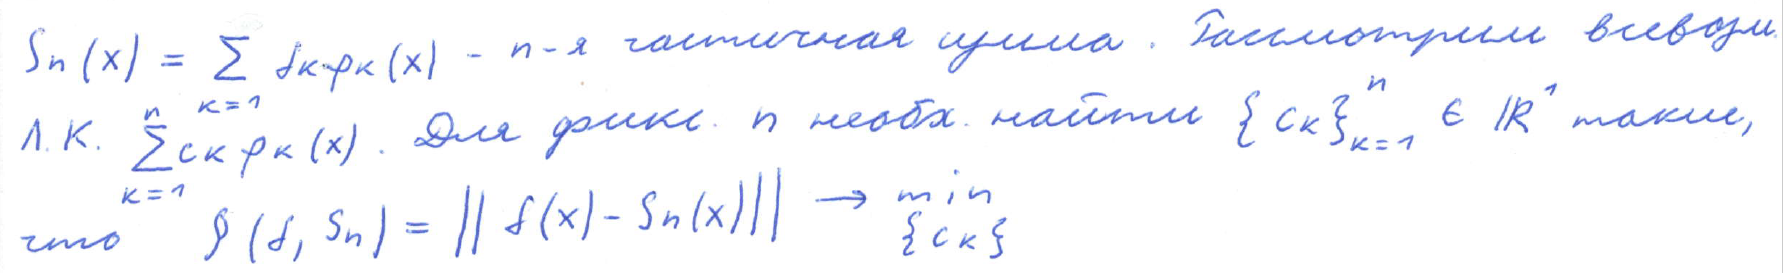 Sn(x) = ∑_{k=1} fk φk(x) - n-я частичная сумма. Рассмотрим всевозм.
Л.К. ∑_{k=1}^{n} ck φk(x). Для фикс. n необх. найти {ck}_{k=1}^{n} ∈ ℝ¹ такие,
что ρ(f, Sn) = ||f(x) - Sn(x)|| → min_{{ck}}